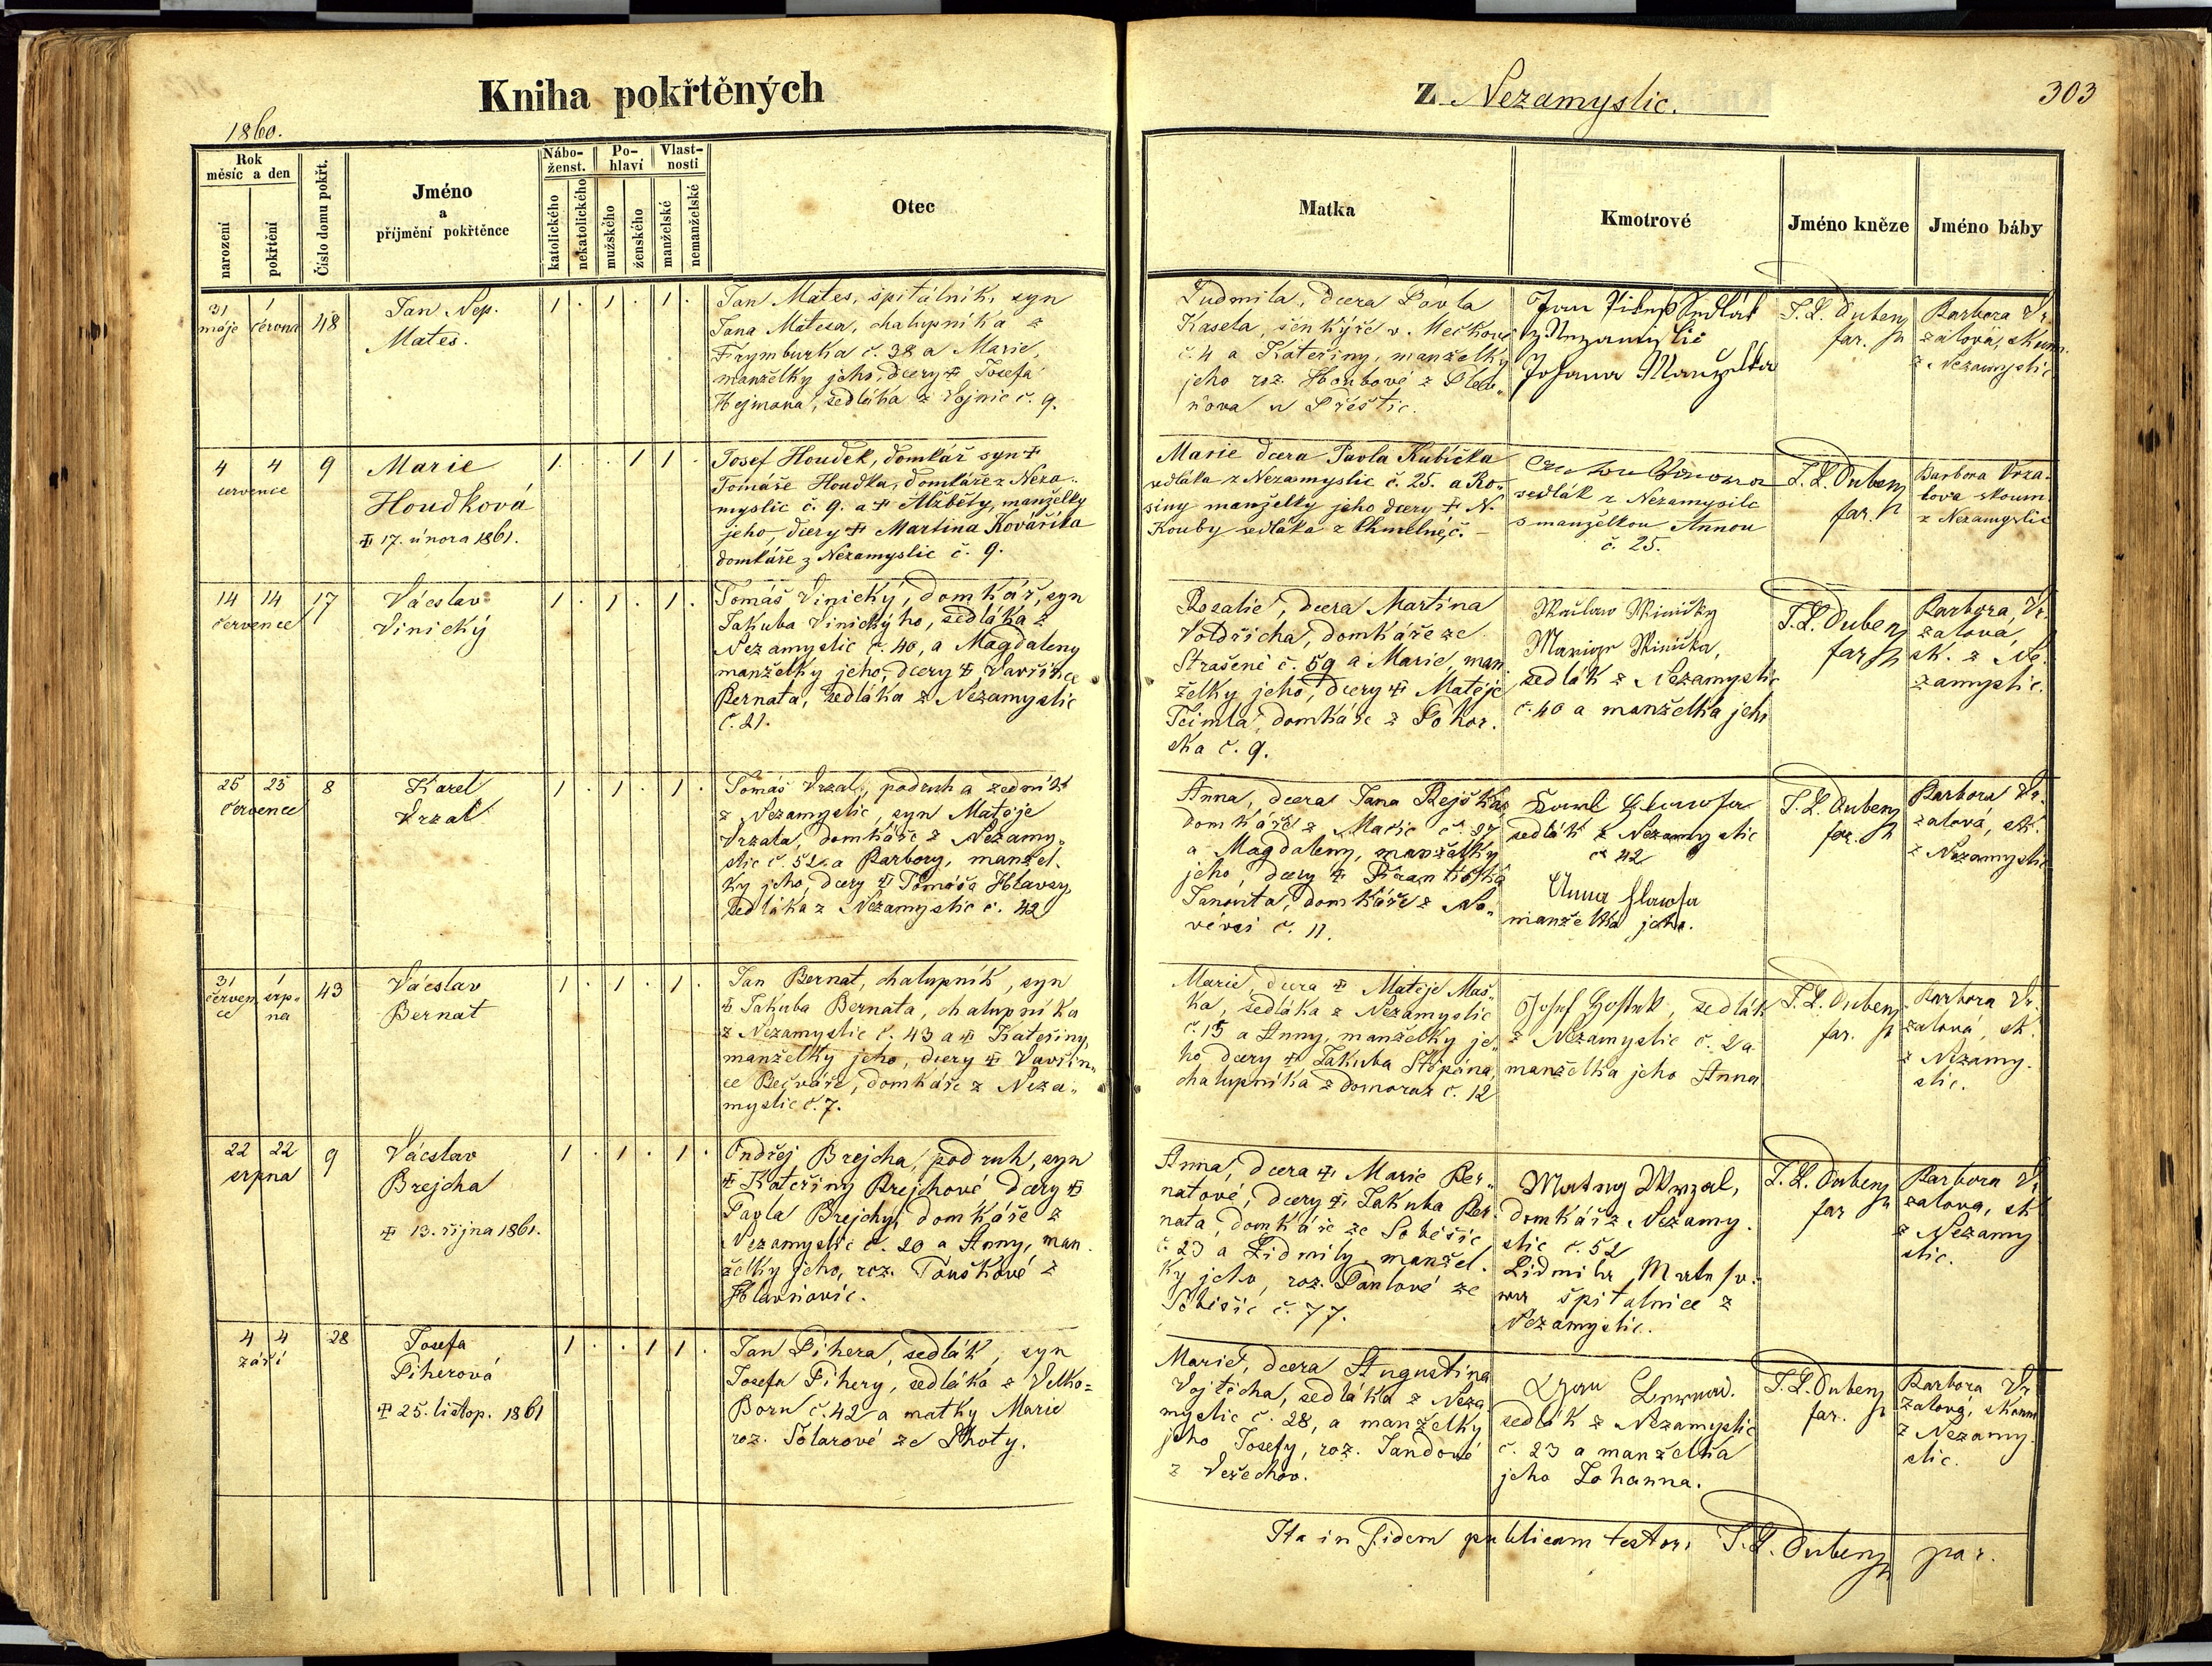 Kniha pokřtěných
z Nezamyslic.
303
1860.
Rok
měsíc a den
narození
pokřtění
Číslo domu pokřt.
Jméno
a
příjmění pokřtěnce
Nábo-
ženst.
katolického
nekatolického
Po-
hlaví
mužského
ženského
Vlast-
nosti
manželské
nemanželské
Otec
Matka
Kmotrové
Jméno kněze
Jméno báby
31
máje
1
června
48
Jan Nep.
Mates.
1 . 1 . 1 .
Jan Mates, špitálník, syn
Jana Matesa, chalupníka z
Frymburka č. 38 a Marie,
manželky jeho, dcery ‡ Josefa
Hejmana, sedláka z Vojnic č. 9.
Ludmila, dcera Pavla
Kasela, šenkýře v
č. 4 a Kateřiny, manželky
jeho roz. Houbové z
u Přeštic.
Jan Sedlák
z Nezamyslic
Johana Manželka
J. L. Dubenz
far.
Barbora Vr-
zalová, skoum.
z Nezamyslic
4 4
července
9
Marie
Houdková
‡ 17. února 1861.
1 . . 1 1 .
Josef Houdek, domkář syn ‡
Tomáše Houdka, domkáře z Neza-
myslic č. 9. a ‡ Alžběty, manželky
jeho, dcery ‡ Martina Kováříka
domkáře z Nezamyslic č. 9.
Marie dcera Pavla Kubíčka
sedláka z Nezamyslic č. 25. a Ro-
siny manželky jeho dcery ‡ N.
Kouby sedláka z Chmelné, č. –
sedlák z Nezamyslic
s manželkou Annou
č. 25.
J. L. Dubenz
far.
Barbora Vrza-
lova skoum.
z Nezamyslic
14 14
července
17
Václav
Vinický
1 . 1 . 1 .
Tomáš Vinický, domkář, syn
Jakuba Vinickýho, sedláka z
Nezamyslic č. 40, a Magdaleny
manželky jeho, dcery ‡ Vavřince
Bernata, sedláka z Nezamyslic
č. 21.
Rozalie, dcera Martina
Voldřicha, domkáře ze
Strašené č. 59 a Marie, man-
želky jeho, dcery ‡ Matěje
domkáře z Pohor-
ska č. 9.
Winičky
Winička,
sedlák z Nezamyslic
č. 40 a manželka jeho
J. L. Dubenz
far
Barbora Vr-
zalová,
sk. z Ne-
zamyslic.
25 25
července
8
Karel
Vrzal
1 . 1 . 1 .
Tomáš Vrzal, podruh a zedník
z Nezamyslic, syn Matěje
Vrzala, domkáře z Nezamy-
slic č. 52 a Barbory, manžel-
ky jeho, dcery ‡ Tomáše Hlavsy,
sedláka z Nezamyslic č. 42
Anna, dcera Jana Rejška,
domkáře z Mačic č. 37
a Magdaleny, manželky
jeho, dcery ‡ Františka
Janovita, domkáře z No-
vévsi č. 11.
sedlák z Nezamyslic
č. 42
Anna Hlawsa
manželka jeho.
J. L. Dubenz
far.
Barbora Vr-
zalová, sk.
z Nezamyslic
31
červen
ce
1
srp-
na
43
Václav
Bernat
1 . 1 . 1 .
Jan Bernat, chalupník, syn
‡ Jakuba Bernata, chalupníka
z Nezamyslic č. 43 a ‡ Kateřiny,
manželky jeho, dcery ‡ Vavřin-
ce Bečváře, domkáře z Neza-
myslic č. 7.
Marie, dcera ‡ Matěje Maš-
ka, sedláka z Nezamyslic
č. 15 a Anny, manželky je-
ho dcery ‡ Jakuba Štěpána,
chalupníka z Domoraz č. 12
Josef sedlák
z Nezamyslic č. 2 a
manželka jeho Anna
J. L. Dubenz
far.
Barbora Vr-
zalová, sk.
z Nezamy-
slic.
22 22
srpna
9
Václav
Brejcha
‡ 13. října 1861.
1 . 1 . 1 .
Ondřej Brejcha, podruh, syn
‡ Kateřiny Brejchové, dcery ‡
Pavla Brejchy, domkáře z
Nezamyslic č. 20 a Anny, man-
želky jeho, roz. Touškové z
Hlavňovic.
Anna, dcera ‡ Marie Ber-
natové, dcery ‡ Jakuba Ber-
nata, domkáře ze Soběšic
č. 23 a Lidmily manžel-
ky jeho, roz. Pavlové ze
Soběšic č. 77.
Wrzal,
domkář z Nezamy-
slic č. 52
Lidmila
špitalnice z
Nezamyslic.
J. L. Dubenz
far
Barbora Vr
zalova, sk
z Nezamy
slic.
4 4
září
28
Josefa
Piherová
‡ 25. listop. 1861
1 . . 1 1 .
Jan Pihera, sedlák, syn
Josefa Pihery, sedláka z Velko-
Boru č. 42 a matky Marie
roz. Tolarové ze Lhoty.
Marie, dcera Augustina
Vojtěcha, sedláka z Neza-
myslic č. 28, a manželky
jeho Josefy, roz. Jandové
z Veřechov.
Jan
sedlák z Nezamyslic
č. 23 a manželka
jeho Johanna.
J. L. Dubenz
far.
Barbora Vr
zalova, skoum
z Nezamy-
slic.
Ita in fidem publicam testor. J. L. Dubenz par.